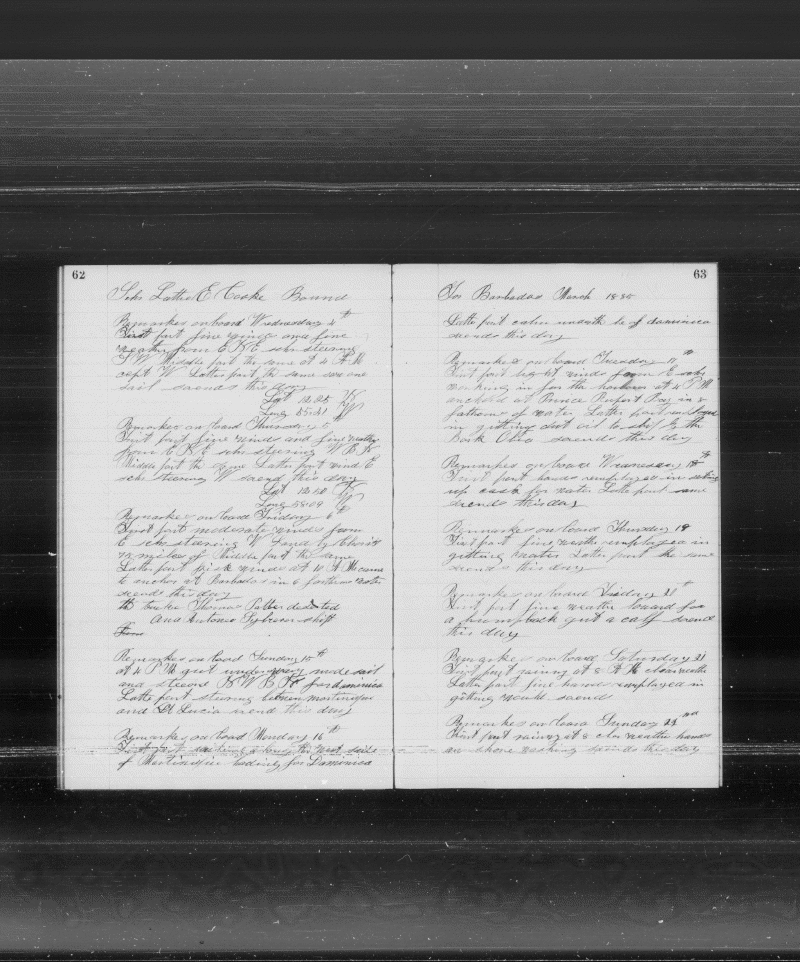 62
Schr Lottie E Cooke Bound
Remarkes on board Wednesday 4th
First part fine winds and fine
weather from E N E schr steering
W middle part the same at 4 A M
W Latter part the same saw one
sail soends this day
Lat 12.25 N
Long 55.41 W
Remarkes on board Thursday 5th
First part fine winds and fine weather
from E N E schr steering W B N
Middle part the same Latter part wind E
schr steering W soends this day
Lat 12.50 N
Long 58.09 W
Remarkes on board Friday 6th
First part moderate winds from
E schr steering W Land by
miles of Middle part the same
Latter part winds at 10 A M came
to anchor at Barbados in 6 fathoms water
soends this day
Thomas
And Antone ship
Remarkes on board Sunday 15th
at 4 P M got underway made sail
and steered N W B N for dominica
Latter part steering between martinique
and St Lucia soend this day
Remarkes on board Monday 16th
First part along the west side
of Martinique heading for Dominica
63
For Barbados March 1885
Latter part calm under the of dominica
soends this day
Remarkes on board Tuesday 17th
First part light winds from E schr
working in for the harbour at 4 P M
anchord at Prince Rupert Bay in 8
fathoms of water Latter part employed
in gitting out oil to ship by the
Bark Ohio soends this day
Remarkes on board Wednesday
First part hands employed in setting
up cask for water Latter part same
soends this day
Remarkes on board Thursday 19
First part fine weather employed in
gitting water Latter part the same
soends this day
Remarkes on board Friday
First part fine weather lowered for
a humpback got a calf soends
this day
Remarkes on board Saturday 21
First part raining at 8 A M clear weather
Latter part fine hands employed in
gitting wood soends
Remarkes on board Sunday
First part raining at 8 weather hands
on shore washing soends this day